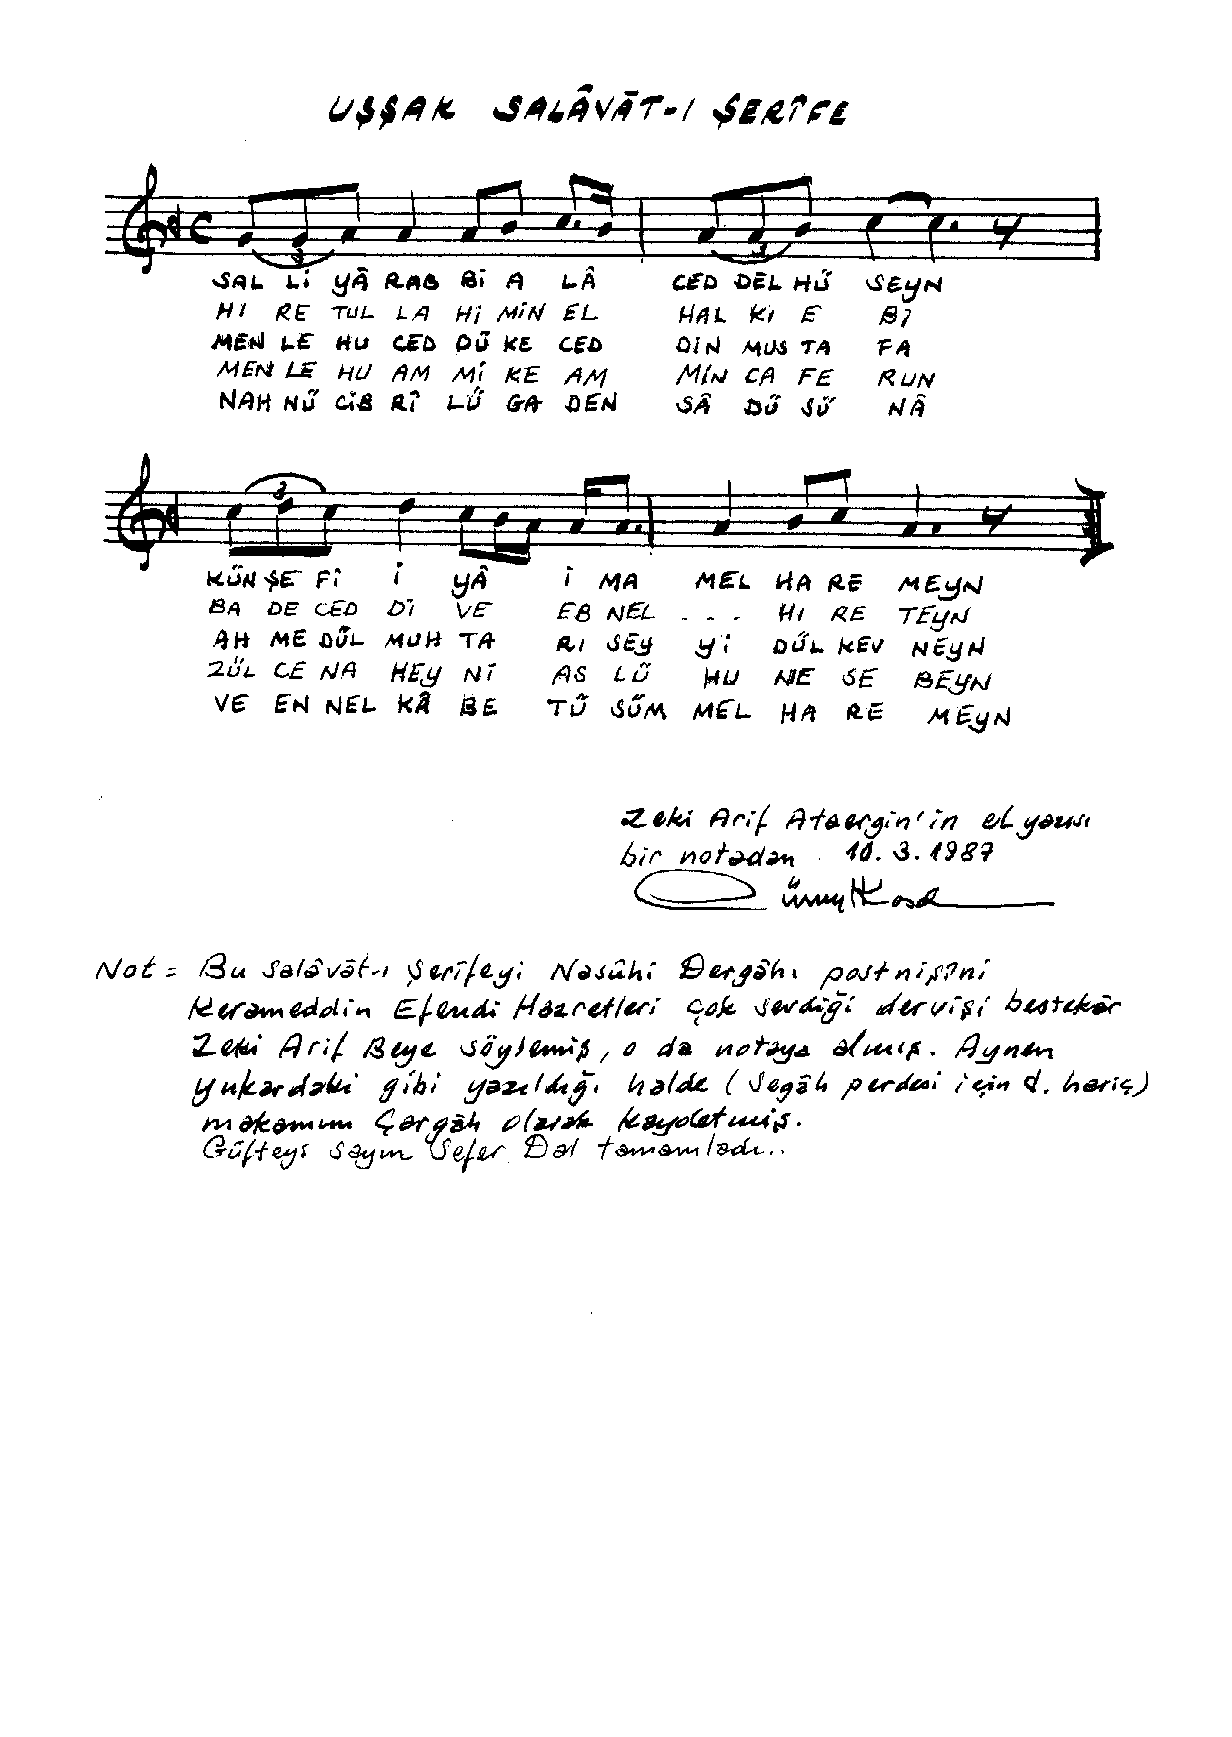 UŞŞAK SALÂVÂT-I ŞERÎFE
3 3
SAL Lİ YÂ RAB Bİ A LÂ CED DEL HÜ SEYN
HI RE TUL LA Hİ MİN EL HAL KI E Bİ
MEN LE HU CED DÜ KE CED DİN MUS TA FA
MEN LE HU AM Mİ KE AM MİN CA FE RUN
NAH NÜ CİB RÎ LÜ GA DEN SÂ DÜ SÜ NÂ
3
KÜN ŞE Fİ İ YÂ İ MA MEL HA RE MEYN
BA DE CED Dİ VE EB NEL . . . HI RE TEYN
AH ME DÜL MUH TA RI SEY Yİ DÜL KEV NEYN
ZÜL CE NA HEY Nİ AS LÜ HU NE SE BEYN
VE EN NEL KÂ BE TÜ SÜM MEL HA RE MEYN
Zeki Arif Ataergin'in el yazısı
bir notadan 10.3.1987
Not = Bu salâvât-ı Şerîfeyi Nasûhi Dergâhı postnişîni
Kerameddin Efendi Hazretleri çok sevdiği dervişi bestekâr
Zeki Arif Beye söylemiş, o da notaya almış. Aynen
yukardaki gibi yazıldığı halde (Segâh perdesi için d. hariç)
makamını Çargâh olarak kaydetmiş.
Güfteyi sayın Sefer Dal tamamladı..